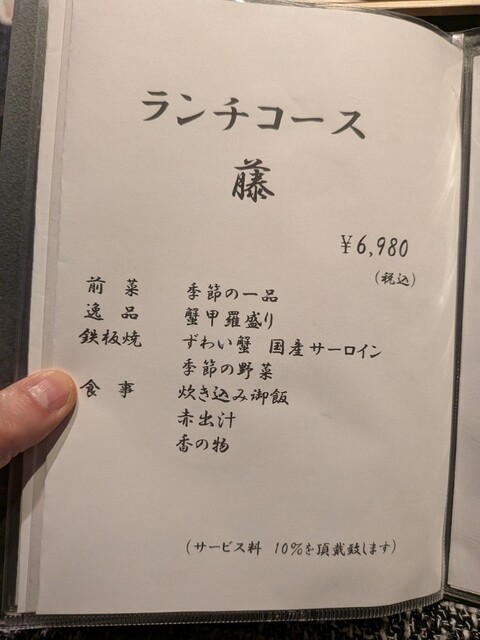 ランチコース
藤
¥6,980
(税込)
前菜 季節の一品
逸品 蟹甲羅盛り
鉄板焼 ずわい蟹 国産サーロイン
季節の野菜
食事 炊き込み御飯
赤出汁
香の物
(サービス料 10%を頂戴致します)